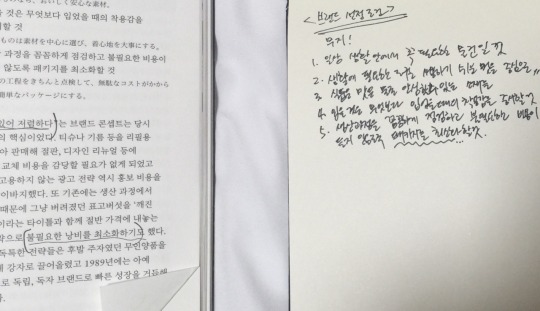 なの、おいしく安心な素材。
을 것은 무엇보다 입었을 때의 착용감을
시할 것
ものは素材を中心に選び、着心地を大事にする。
산 과정을 꼼꼼하게 점검하고 불필요한 비용이
지 않도록 패키지를 최소화할 것
の工程をきちんと点検して、無駄なコストがかから
簡単なパッケージにする。
있어 저렴하다'는 브랜드 콘셉트는 당시
의 핵심이었다. 티슈나 기름 등을 리필용
아 판매해 절반, 디자인 리뉴얼 등에
교체 비용을 감당할 필요가 없게 되었고
고용하지 않는 광고 전략 역시 홍보 비용을
이바지했다. 또 기존에는 생산 과정에서
때문에 그냥 버려졌던 표고버섯을 '깨진
이라는 타이틀과 함께 절반 가격에 내놓는
약으로 불필요한 낭비를 최소화하기도 했다.
독특한 전략들은 후발 주자였던 무인양품을
에 강자로 끌어올렸고 1989년에는 아예
로 독립, 독자 브랜드로 빠른 성장을 거듭해
다.
<브랜드 선정 조건>
무지!
1. 일상 생활 안에서 꼭 필요한 물건일 것
2. 생활에 필요한
3. 식품은 맛은 안심할 수 있는 재료
4. 입는 것은 무엇보다 입었을 때의 착용감을 중시할 것
5. 생산과정을 꼼꼼하게 점검하고 불필요한 비용이
들지 않도록 패키지를 최소화할 것.